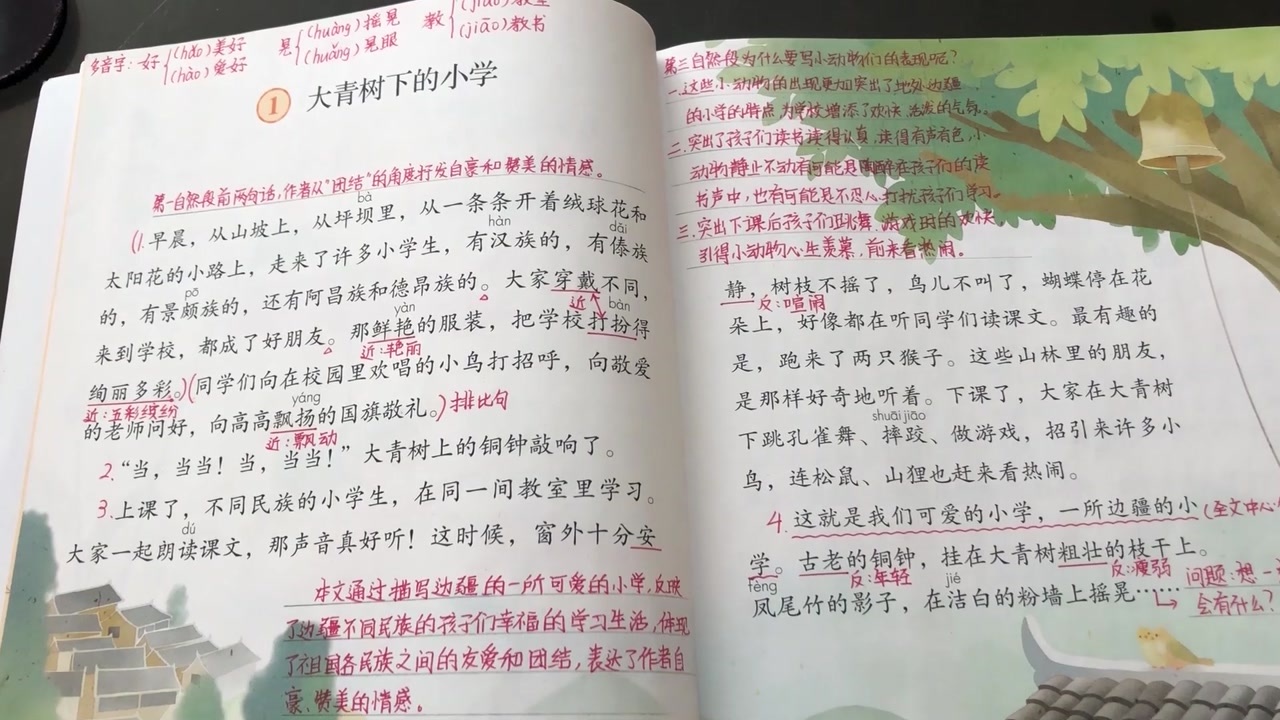 多音字：好 (hǎo)美好 晃 (huàng)摇晃 教 (jiào)教室
(hào)爱好 (huǎng)晃眼 (jiāo)教书
1 大青树下的小学
第一自然段前两句话，作者从“团结”的角度抒发自豪和赞美的情感。
bà
(1.早晨，从山坡上，从坪坝里，从一条条开着绒球花和
hàn dǎi
太阳花的小路上，走来了许多小学生，有汉族的，有傣族
pō
的，有景颇族的，还有阿昌族和德昂族的。大家穿戴不同，
yàn 近 bàn
来到学校，都成了好朋友。那鲜艳的服装，把学校打扮得
近：艳丽
绚丽多彩。)(同学们向在校园里欢唱的小鸟打招呼，向敬爱
近：五彩缤纷 yáng
的老师问好，向高高飘扬的国旗敬礼。)排比句
近：飘动
2.“当，当当！当，当当！”大青树上的铜钟敲响了。
3.上课了，不同民族的小学生，在同一间教室里学习。
dú
大家一起朗读课文，那声音真好听！这时候，窗外十分安
本文通过描写边疆的一所可爱的小学，反映
了边疆不同民族的孩子们幸福的学习生活，体现
了祖国各民族之间的友爱和团结，表达了作者自
豪、赞美的情感。
第三自然段为什么要写小动物们的表现呢？
一.这些小动物的出现更加突出了地处边疆
的小学的特点，为学校增添了欢快、活泼的气氛。
二.突出了孩子们读书读得认真，读得有声有色，小
动物静止不动有可能是陶醉在孩子们的读
书声中，也有可能是不忍心打扰孩子们学习。
三.突出下课后孩子们跳舞、游戏时的欢快，
引得小动物心生羡慕，前来看热闹。
静，树枝不摇了，鸟儿不叫了，蝴蝶停在花
反：喧闹
朵上，好像都在听同学们读课文。最有趣的
是，跑来了两只猴子。这些山林里的朋友，
是那样好奇地听着。下课了，大家在大青树
shuāi jiāo
下跳孔雀舞、摔跤、做游戏，招引来许多小
鸟，连松鼠、山狸也赶来看热闹。
4.这就是我们可爱的小学，一所边疆的小(全文中心
学。古老的铜钟，挂在大青树粗壮的枝干上。
fèng 反：年轻 jié 反：瘦弱 问题：想一
凤尾竹的影子，在洁白的粉墙上摇晃…… 会有什么？